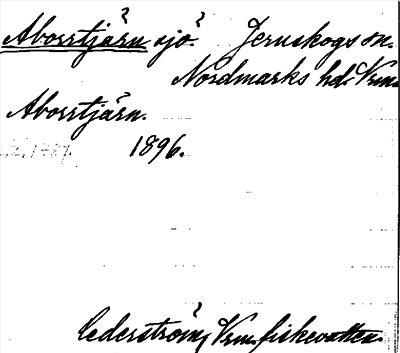 Aborrtjärn sjö. Jernskogs sn.
Nordmarks hd. Vrm.
Aborrtjärn.
1896.
Cederström, Vrm. fiskevatten.